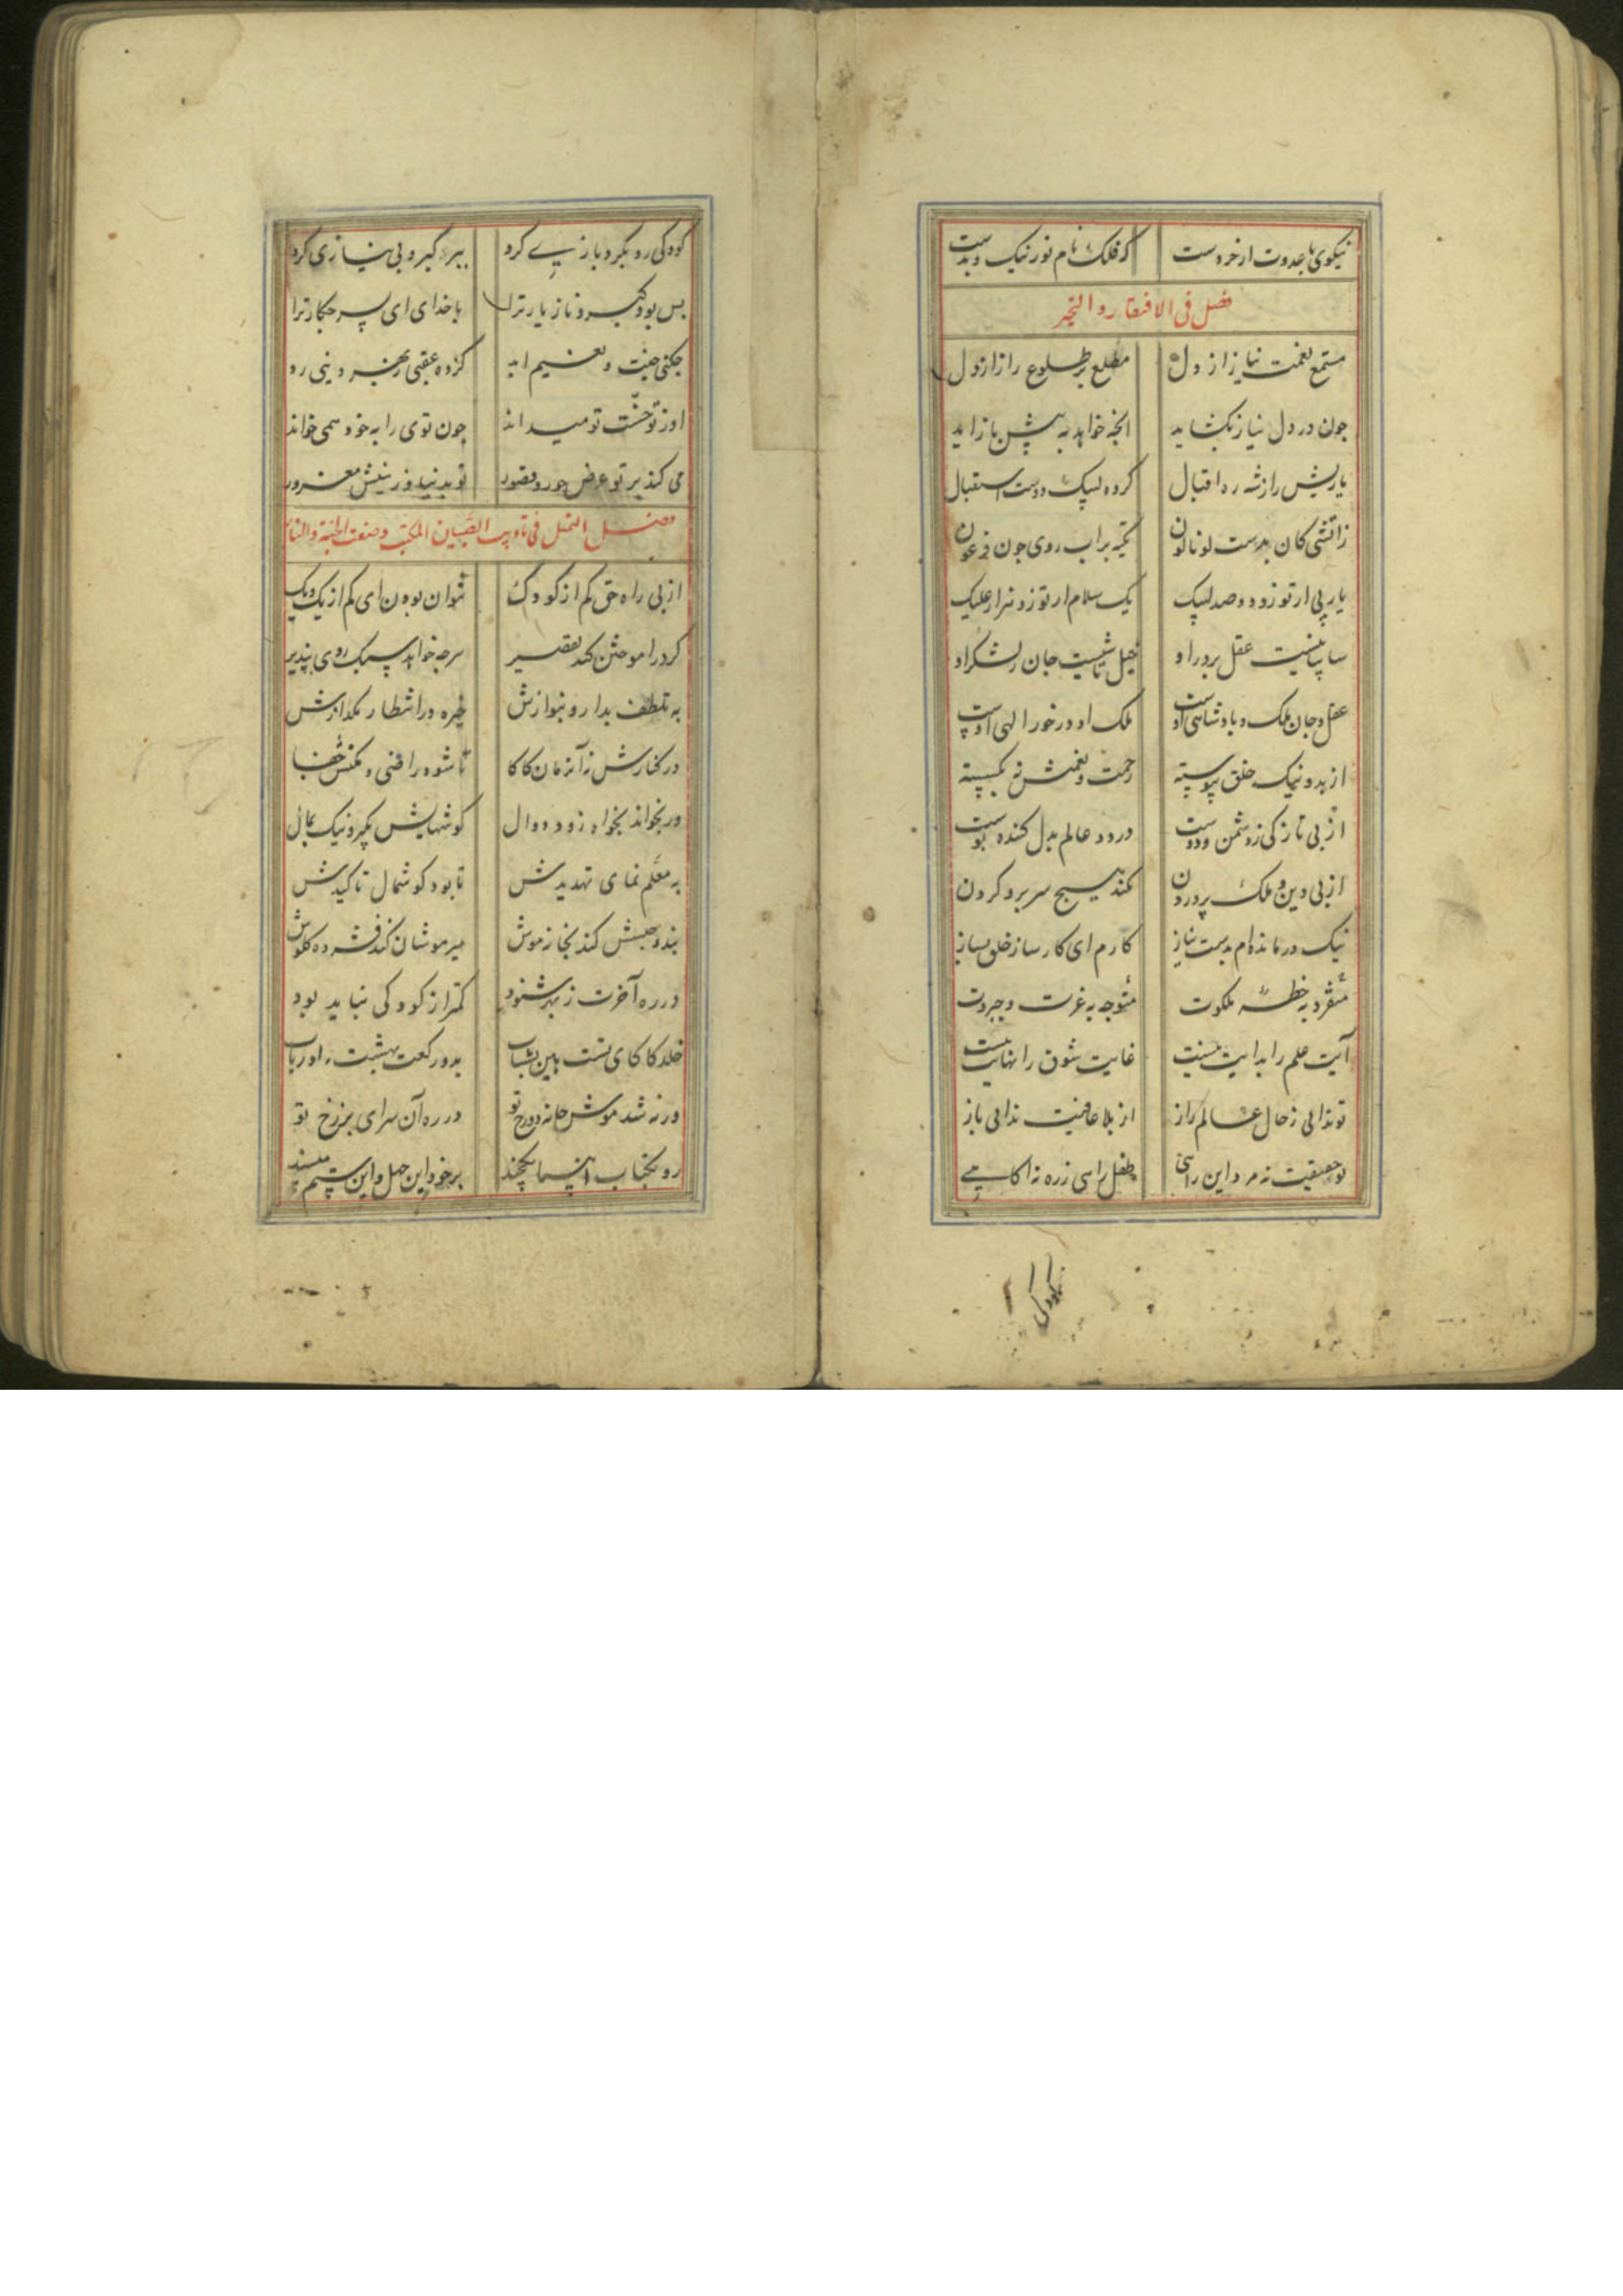 نیکوی با عدوت از خردست که فلک نام نور نیک و بدست
فصل فی الافتقار والتحیر
مستمع نغمت نیاز از دل مطلع بر طلوع راز از دل
چون در دل نیاز بگشاید انچه خواهد به پیش باز اید
یا ربش را ز شه ره اقبال کرده لبیک دوست استقبال
ز اتشی کان بدست لونالون تکیه بر اب روی چون فرعون
یا ربی از تو زو دو صد لبیک یک سلام از تو زو هزار علیک
سایبانیست عقل بر در او خیل تاشیست جان ز لشکر او
عقل و جان ملک و پادشاهی اوست ملک او در خور الهی اوست
از بد و نیک خلق پیوسته رحمت و نعمتش نه بگسسته
از پی تازکی ز دشمن و دوست در دو عالم بدل کننده پوست
از پی دین و ملک پروردن نکند هیچ سر برو کردن
نیک درمانده ام بدست نیاز کارم ای کارساز خلق بساز
متفرد به خطه ملکوت متوجه به عزت و جبروت
آیت علم را بدایت نیست غایت شوق را نهایت نیست
تو ندانی ز حال عالم راز از بلا عافیت ندانی باز
تو حقیقت نه مرد این راهی طفل راهی ز ره نه اکاهی
کودکی رو بکرد بازی کرد ببر کبر و بی نیازی کرد
بس بود کبر و ناز یار ترا با خدای ای پسر چکار ترا
چکنی جنت و نعیم ابد کرده عقبی بهر دنیی رد
او ز تو جنت تو میداند چون توی را به خود همی خواند
می کند بر تو عرض حور و قصور تو بدنیا و زینتش مغرور
فصل التمثل فی تادیب الصبیان المکتب و صفت الجنة والنار
از پی راه حق کم از کودک نتوان بودن ای کم از یک یک
کر در اموختن کند تقصیر هرچه خواهد سبک روی بپذیر
به تلطف بدار و بنوازش خیره در انتظار مکدازش
در کنارش نه آن زمان کاکا تا شود راضی و مکنش جفا
ور نخواند بخواه زود دوال کوشهایش بگیر و نیک بمال
به معلم نمای تهدیدش تا بود کوشمال تاکیدش
بند و حبسش کند بخانه موش میر موشان کند فشرده کلوش
در ره آخرت ز بهر شنود کمتر از کودکی نباید بود
خلد کاکای تست هین بشتاب بدو رکعت بهشت را دریاب
ورنه شد موش خانه دوزخ تو در ره آن سرای برزخ تو
رو بکتاب انبیا یکچند بر خود این جهل و این ستم مپسند
کودکی